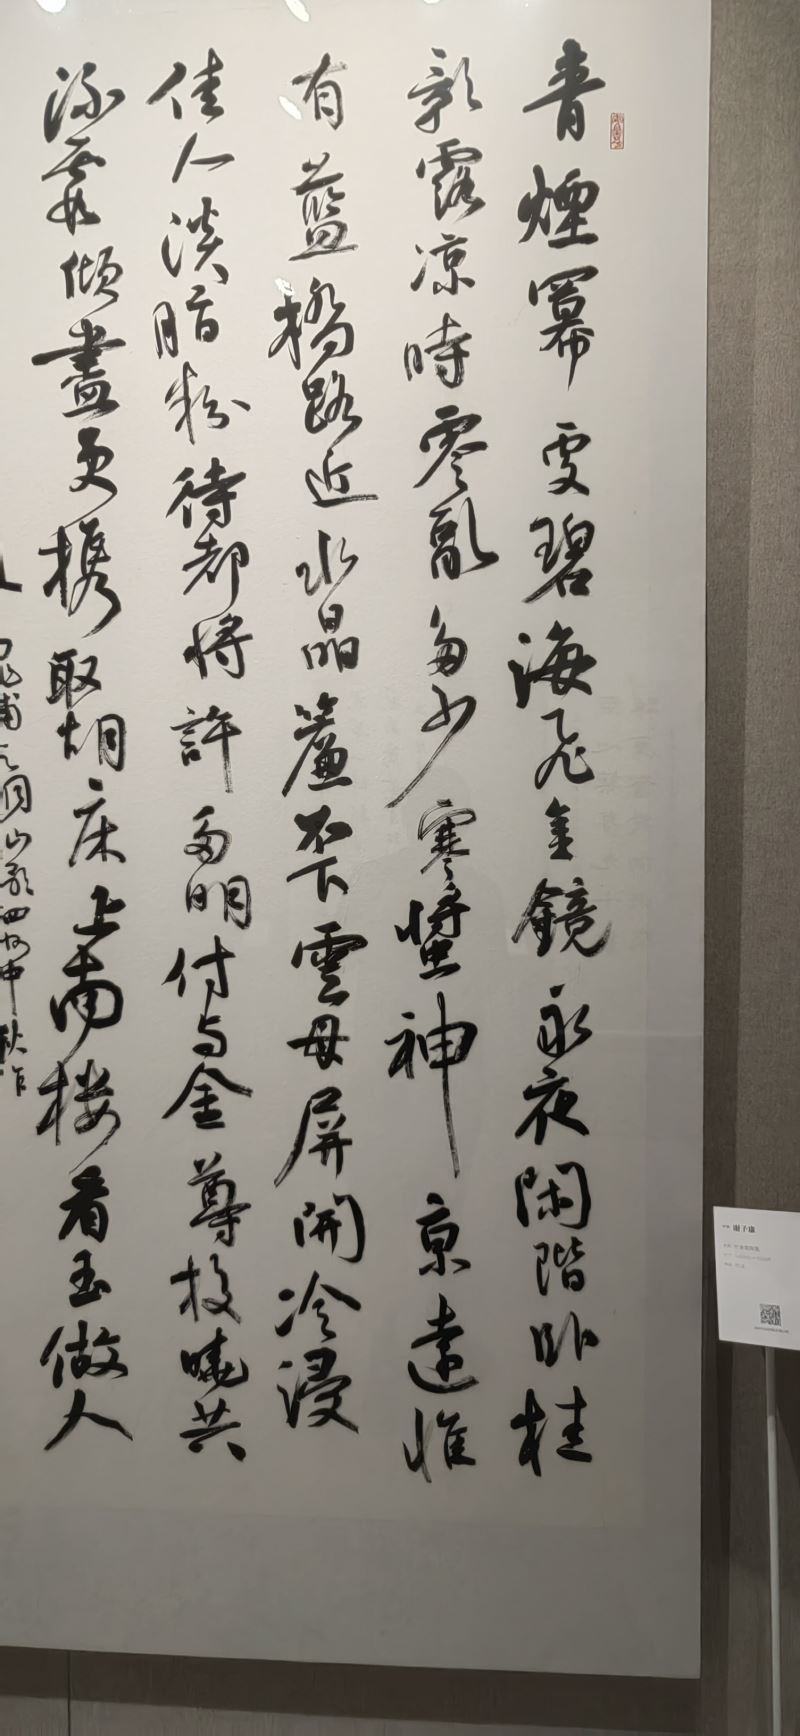 青煙冪處碧海飛金鏡永夜閑階卧桂
影露凉時零亂多少寒螿神京遠惟
有藍橋路近水晶簾不下雲母屏開冷浸
佳人淡脂粉待都將許多明付与金尊投曉共
流霞傾盡更携取胡床上南楼看玉做人
補之洞仙歌泗州中秋作